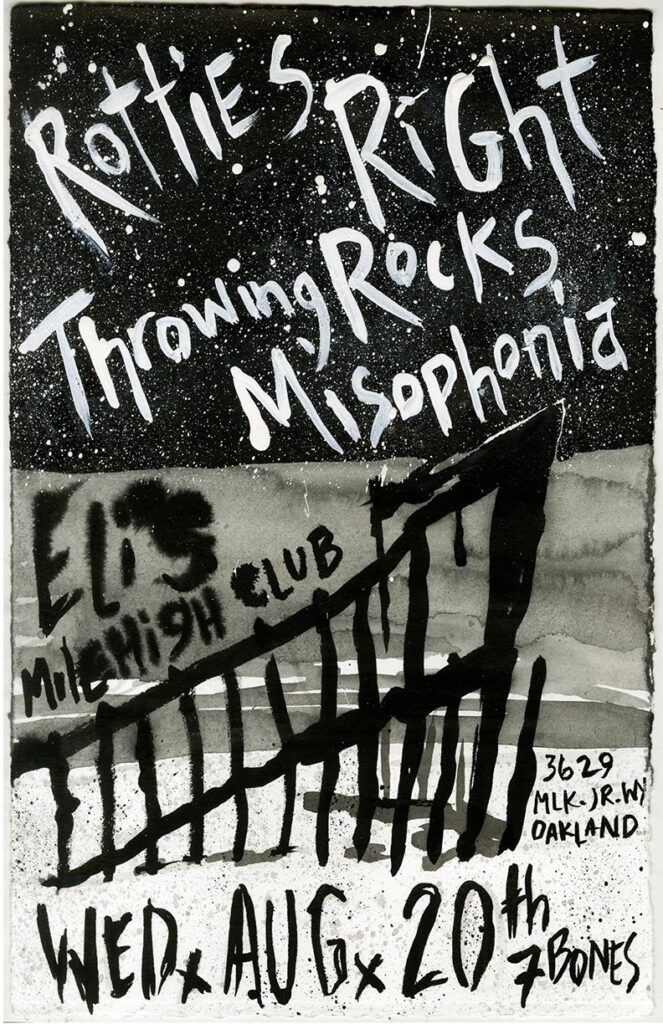 RottiES
RiGht
Throwing RocKS
Misophonia
Eli's
MileHigH CLUB
3629
MLK.JR.WY
OAKLAND
WEDx AUGx 20th
7 BONES